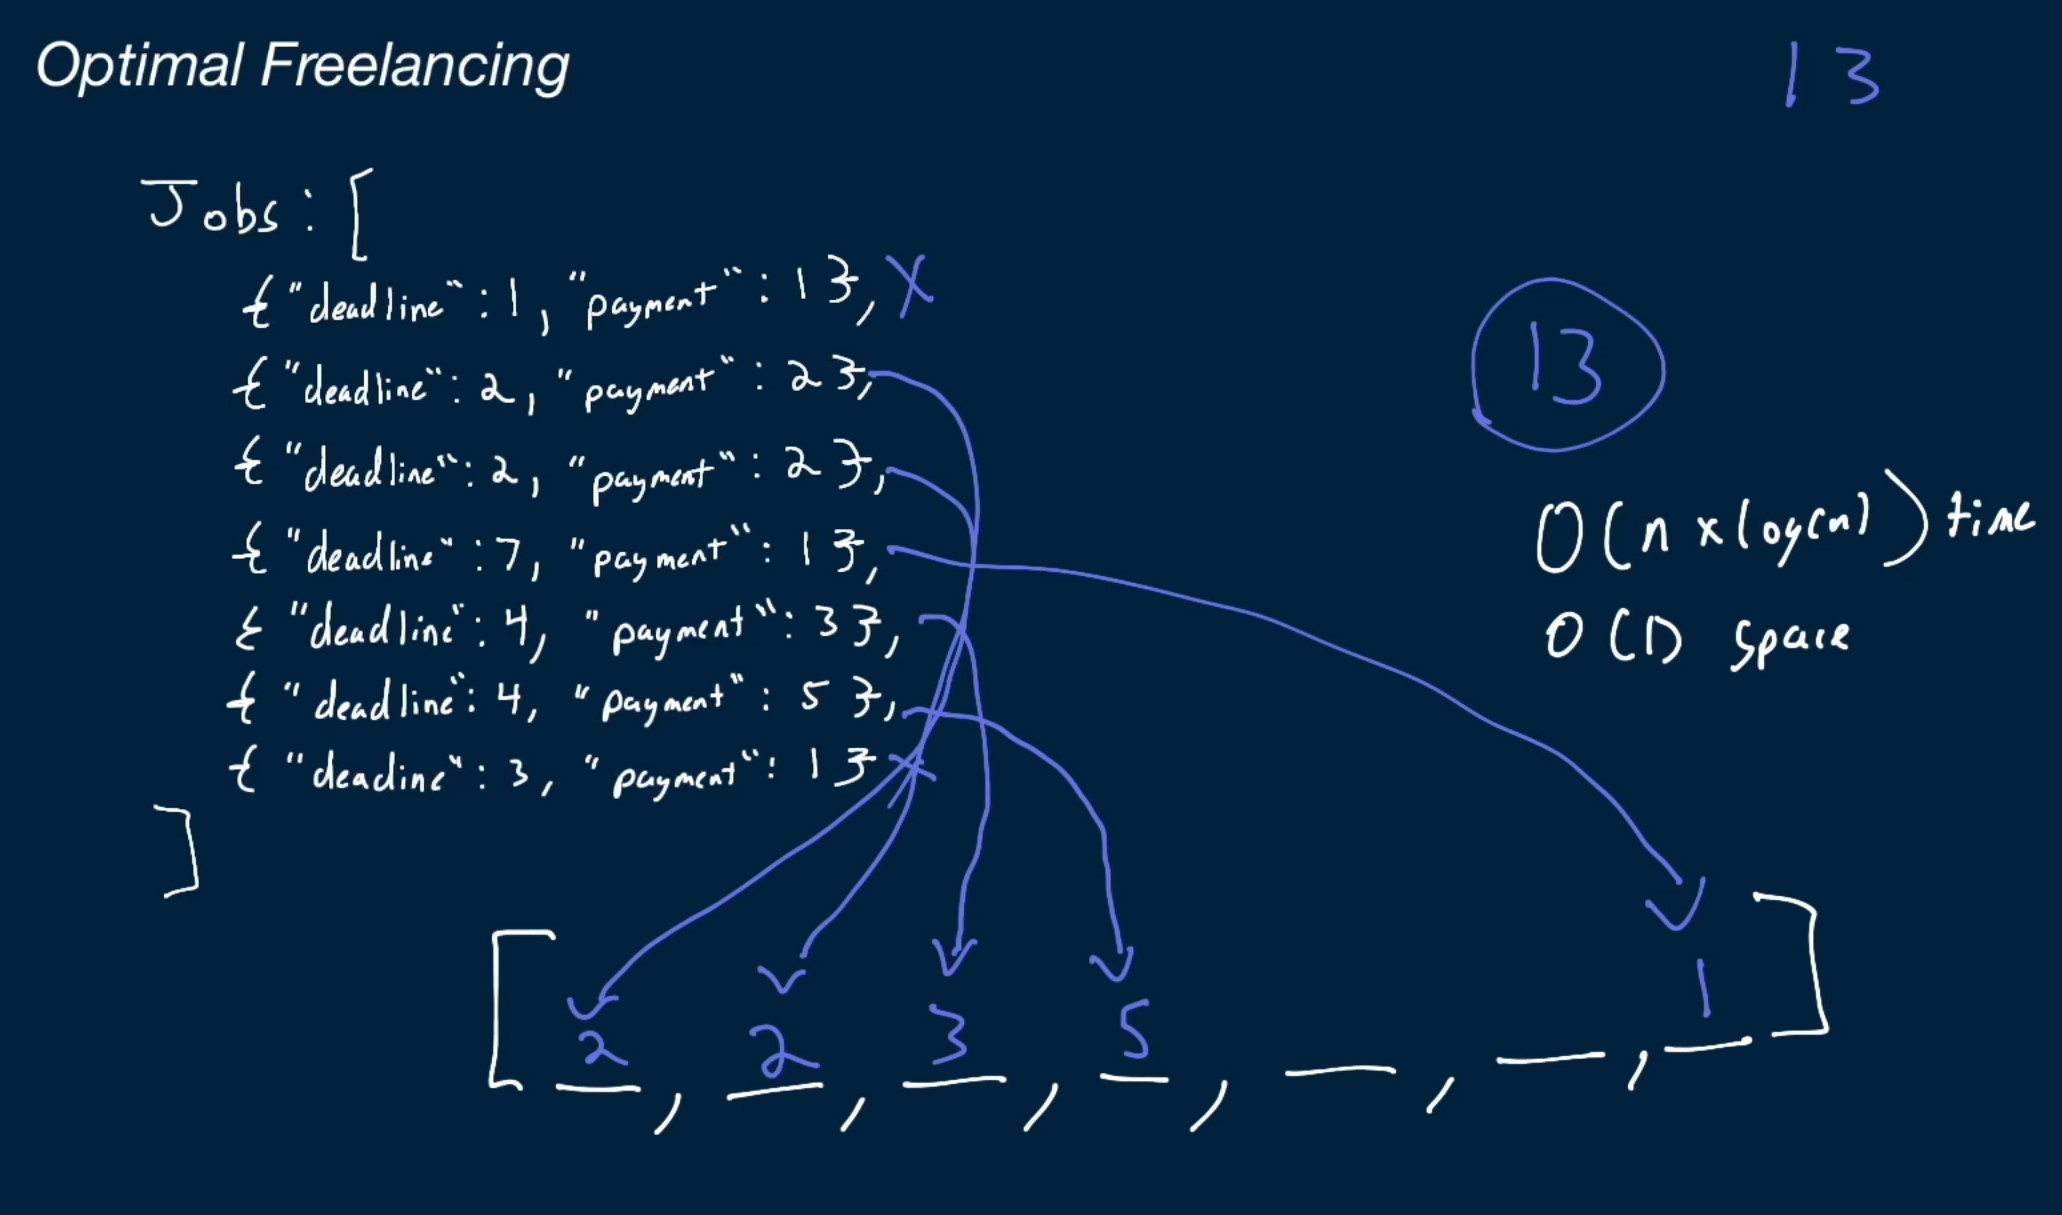 Optimal Freelancing
13
Jobs: [
{"deadline": 1, "payment": 1}, X
{"deadline": 2, "payment": 2},
{"deadline": 2, "payment": 2},
{"deadline": 7, "payment": 1},
{"deadline": 4, "payment": 3},
{"deadline": 4, "payment": 5},
{"deadine": 3, "payment": 1} X
]
13
O(n x log(n)) time
O(1) space
[ 2, 2, 3, 5, _, _, 1 ]